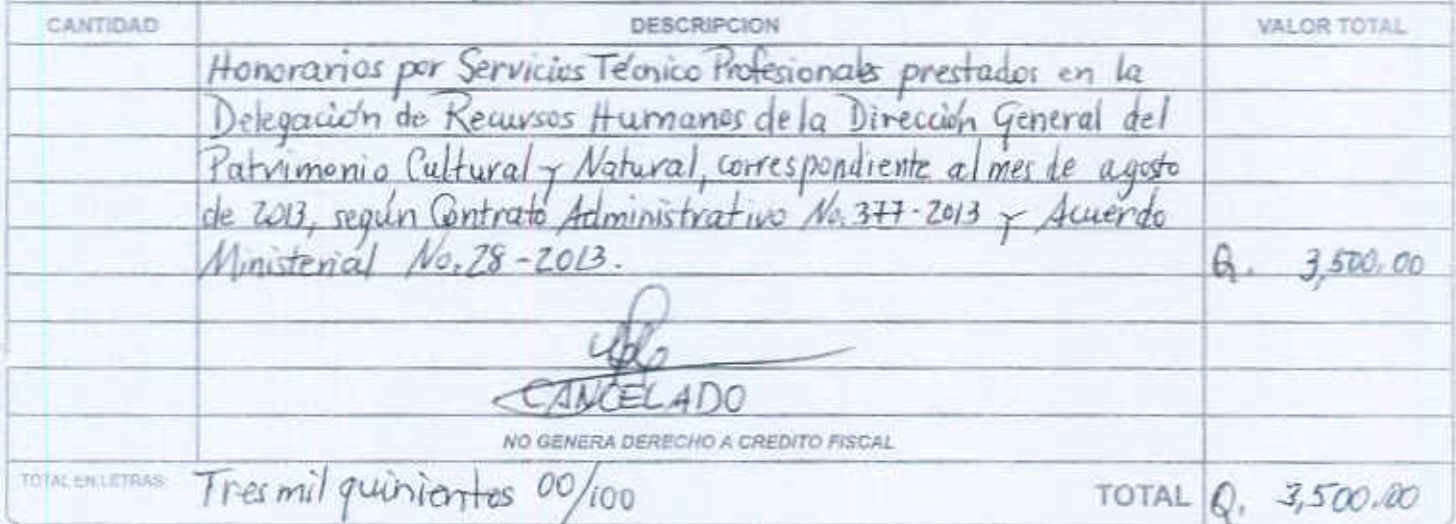 CANTIDAD DESCRIPCION VALOR TOTAL
Honorarios por Servicios Técnico Profesionales prestados en la
Delegación de Recursos Humanos de la Dirección General del
Patrimonio Cultural y Natural, correspondiente al mes de agosto
de 2013, según Contrato Administrativo No. 377-2013 y Acuerdo
Ministerial No. 28-2013. Q. 3,500.00
CANCELADO
NO GENERA DERECHO A CREDITO FISCAL
TOTAL EN LETRAS: Tres mil quinientos 00/100 TOTAL Q. 3,500.00